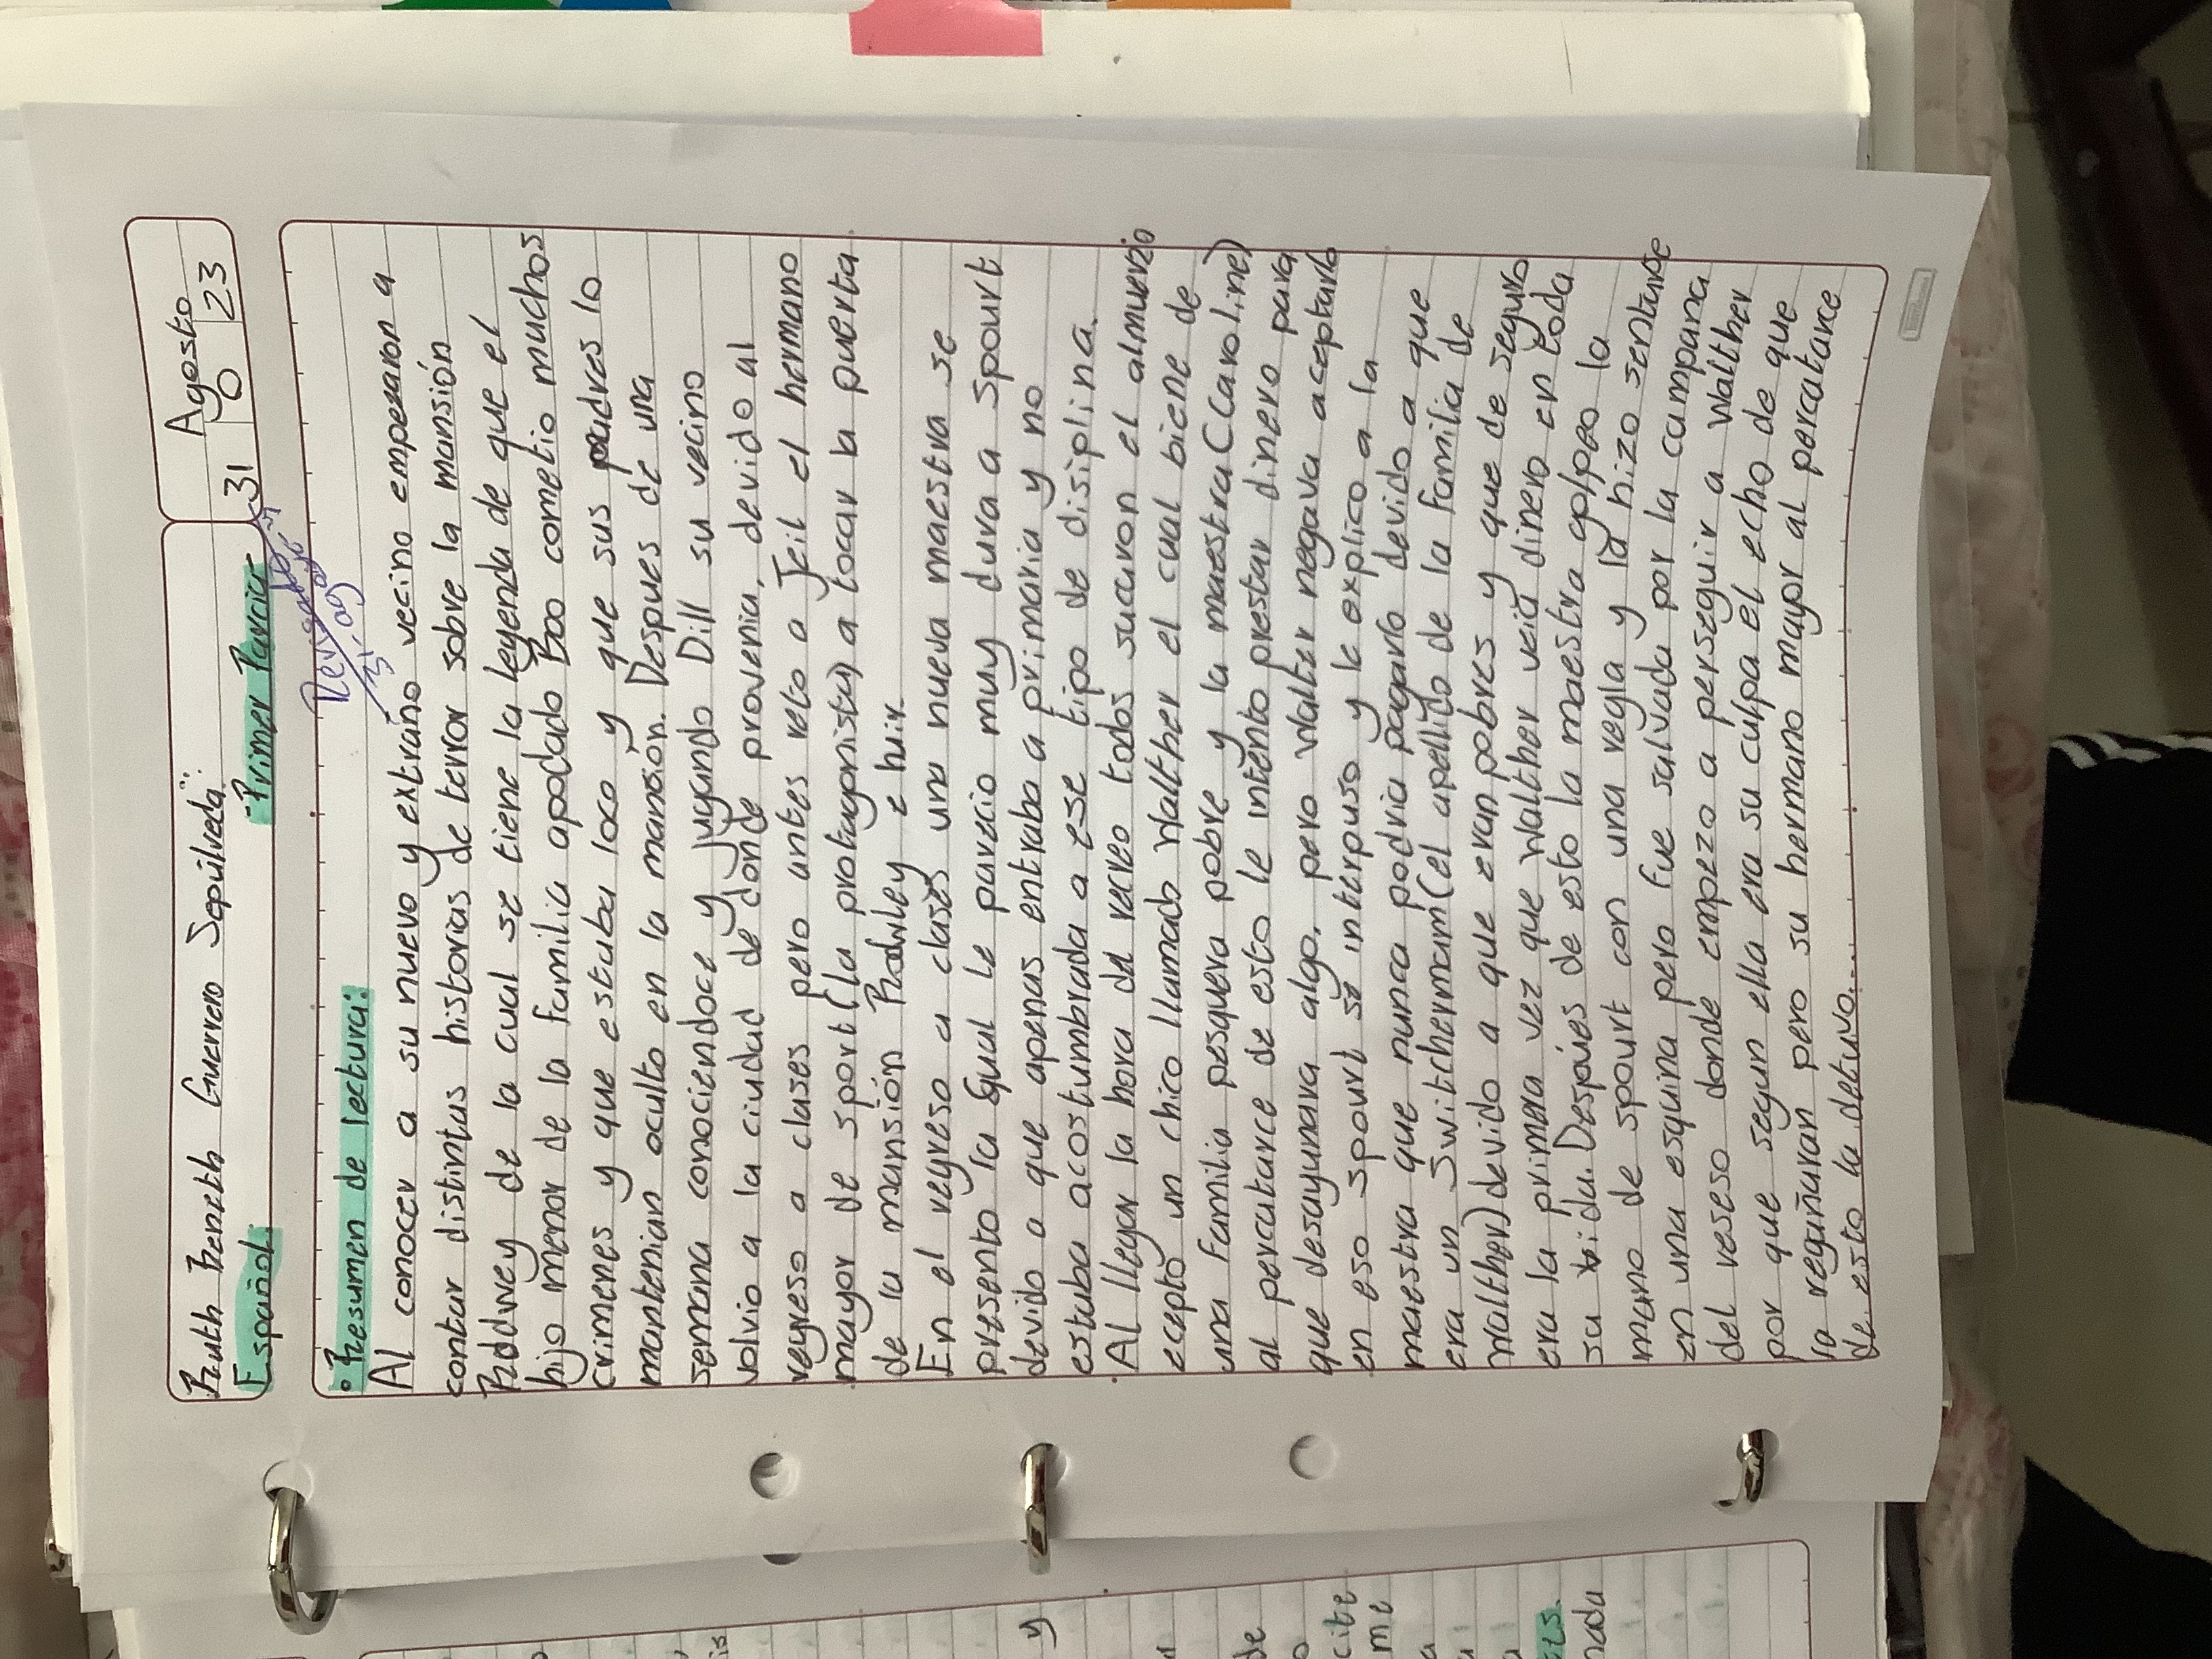 Ruth Zeneth Guerrero Sepúlveda.
Agosto
Español.
-Primer Parcial-
31 0 23
Revisado
31, ag
• Resumen de lectura:
Al conocer a su nuevo y extraño vecino empezaron a
contar distintas historias de terror sobre la mansión
Radwley de la cual se tiene la leyenda de que el
hijo menor de la familia apodado Boo cometio muchos
crimenes y que estaba loco y que sus padres lo
mantenian oculto en la mansión. Despues de una
semana conociendoce y jugando Dill su vecino
volvio a la ciudad de donde provenia, devido al
regreso a clases pero antes reto a Jeil el hermano
mayor de sport (la protagonista) a tocar la puerta
de la mansión Radwley e huir.
En el regreso a clases una nueva maestra se
presento la qual le parecio muy dura a spourt
devido a que apenas entraba a primaria y no
estaba acostumbrada a ese tipo de disiplina.
Al llegar la hora del recreo todos sacaron el almuerzo
ecepto un chico llamado Walther el cual biene de
una familia pesquera pobre y la maestra (Caroline)
al percatarce de esto le intento prestar dinero para
que desayunara algo, pero Walter negava aceptarlo
en eso spourt se interpuso y le explico a la
maestra que nunca podria pagarlo devido a que
era un Switchermam (el apellido de la familia de
Walther) devido a que eran pobres y que de seguro
era la primera vez que Walther veia dinero en toda
su vida. Despúes de esto la maestra golpeo la
mano de spourt con una regla y la hizo sentarse
en una esquina pero fue salvada por la campana
del reseso donde empezo a perseguir a Walther
por que segun ella era su culpa el echo de que
la regañaran pero su hermano mayor al percatarce
de esto la detuvo....
y
de
cite
me
nada